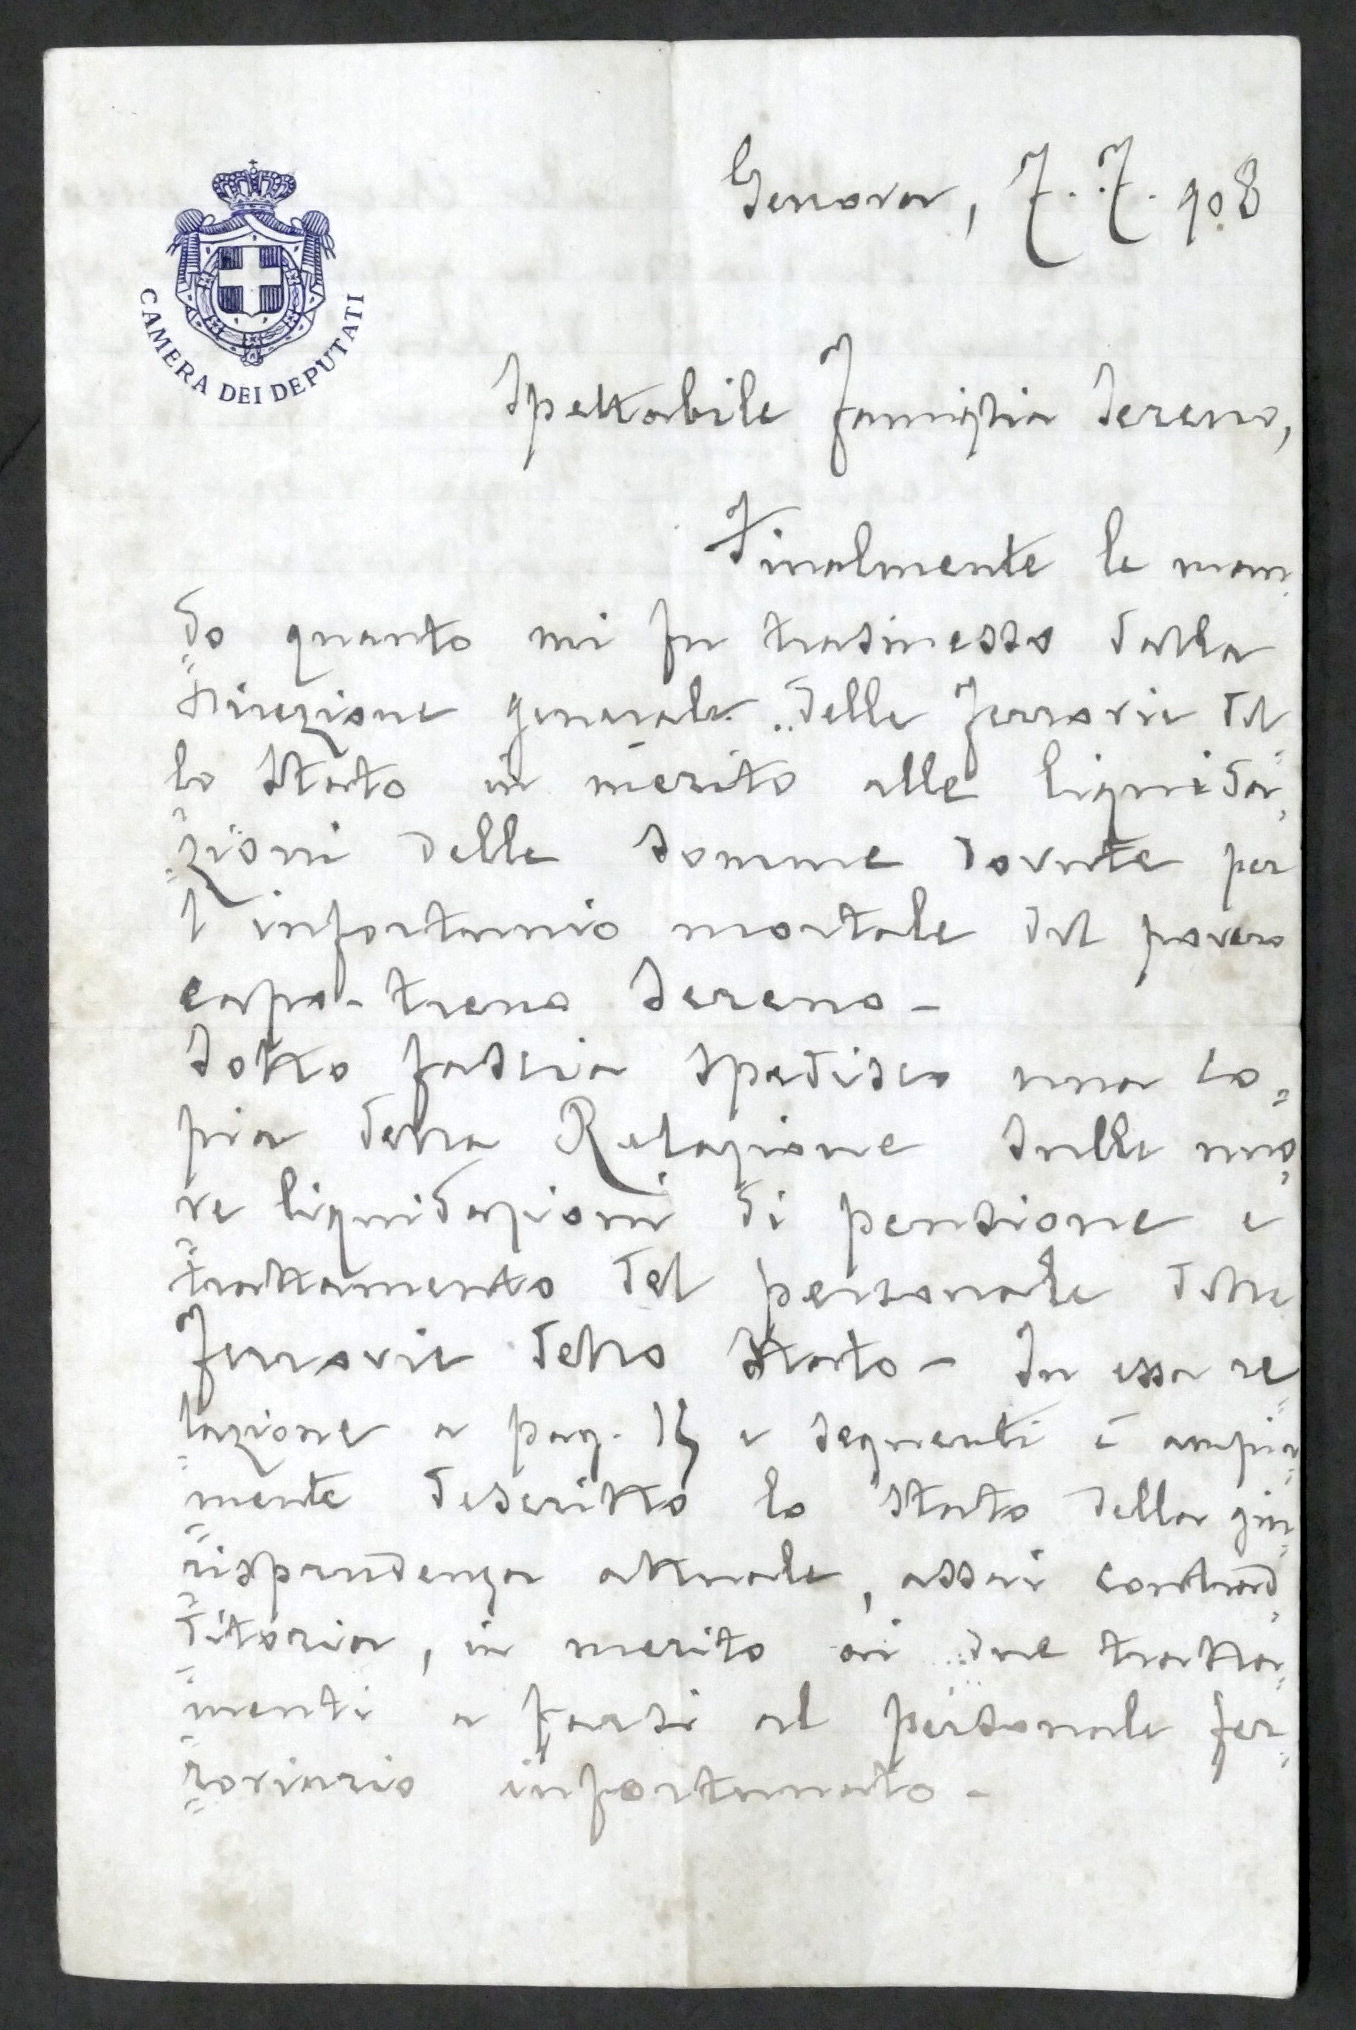 CAMERA DEI DEPUTATI
Genova, 7. 7. 908
Spettabile Famiglia Sereno,
Finalmente le man
do quanto mi fu trasmesso dalla
Direzione generale delle Ferrovie del
lo Stato in merito alle liquida=
zioni delle somme dovute per
l'infortunio mortale del povero
capo-treno Sereno —
Sotto fascia spedisco una co=
pia della Relazione sulle nuo=
ve liquidazioni di pensione e
trattamento del personale delle
Ferrovie dello Stato — In essa re=
lazione a pag. e seguenti è ampia=
mente descritto lo stato della giu=
risprudenza attuale, assai contrad=
ditoria, in merito ai due tratta=
menti a farsi al personale fer=
roviario infortunato —